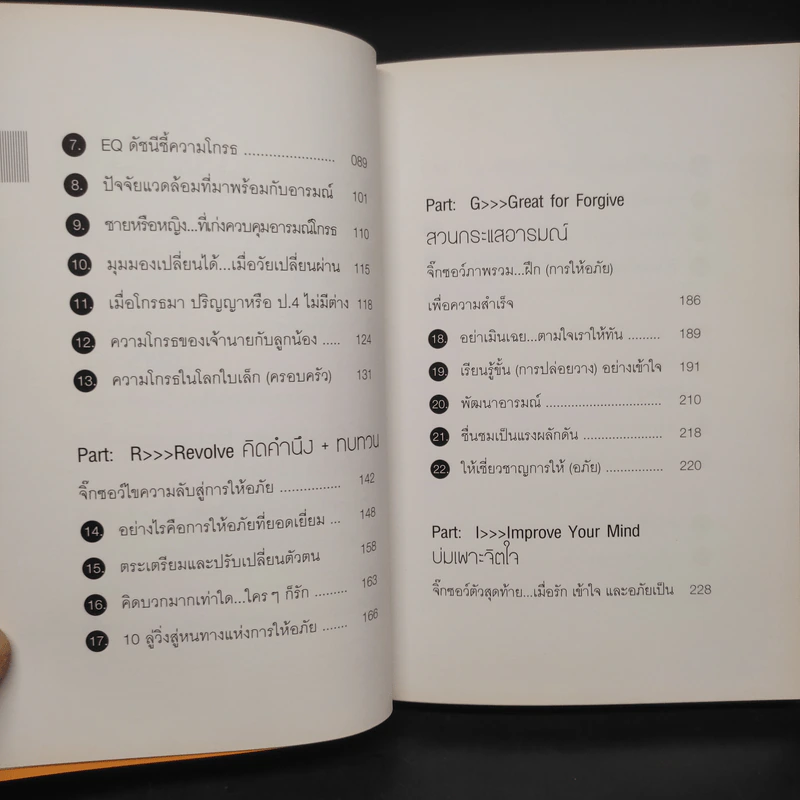 7. EQ ดัชนีชี้ความโกรธ ........................ 089
8. ปัจจัยแวดล้อมที่มาพร้อมกับอารมณ์ 101
9. ชายหรือหญิง...ที่เก่งควบคุมอารมณ์โกรธ 110
10. มุมมองเปลี่ยนได้...เมื่อวัยเปลี่ยนผ่าน 115
11. เมื่อโกรธมา ปริญญาหรือ ป.4 ไม่มีต่าง 118
12. ความโกรธของเจ้านายกับลูกน้อง ..... 124
13. ความโกรธในโลกใบเล็ก (ครอบครัว) 131
Part: R>>>Revolve คิดคำนึง + ทบทวน
จิ๊กซอว์ไขความลับสู่การให้อภัย ................ 142
14. อย่างไรคือการให้อภัยที่ยอดเยี่ยม ... 148
15. ตระเตรียมและปรับเปลี่ยนตัวตน 158
16. คิดบวกมากเท่าใด...ใครๆ ก็รัก ......... 163
17. 10 ลู่วิ่งสู่หนทางแห่งการให้อภัย ....... 166
Part: G>>>Great for Forgive
สวนกระแสอารมณ์
จิ๊กซอว์ภาพรวม...ฝึก (การให้อภัย)
เพื่อความสำเร็จ 186
18. อย่าเมินเฉย...ตามใจเราให้ทัน ......... 189
19. เรียนรู้ขั้น (การปล่อยวาง) อย่างเข้าใจ 191
20. พัฒนาอารมณ์ ................................. 210
21. ชื่นชมเป็นแรงผลักดัน ....................... 218
22. ให้เชี่ยวชาญการให้ (อภัย) ................ 220
Part: I>>>Improve Your Mind
บ่มเพาะจิตใจ
จิ๊กซอว์ตัวสุดท้าย...เมื่อรัก เข้าใจ และอภัยเป็น 228